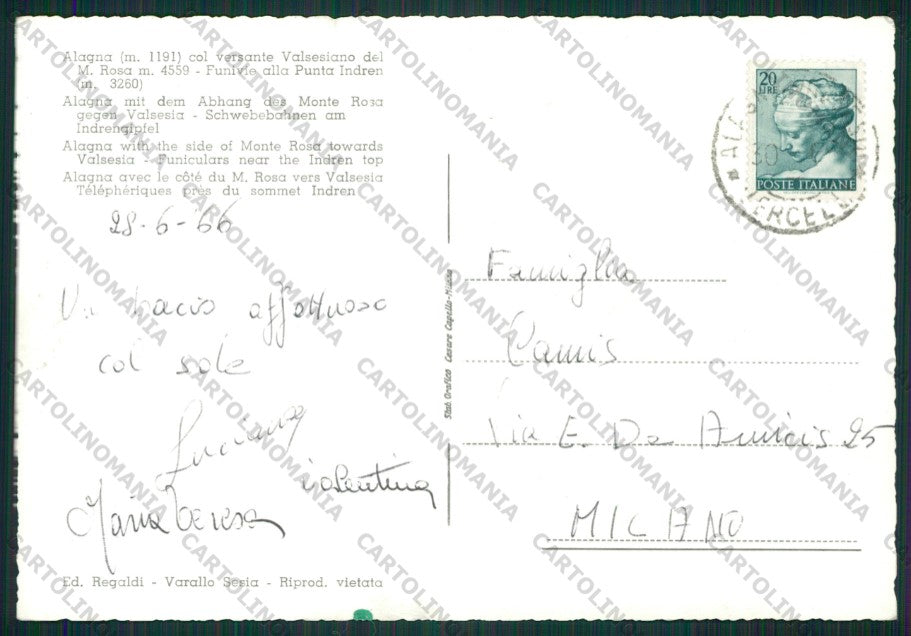 Alagna (m. 1191) col versante Valsesiano del
M. Rosa m. 4559 - Funivie alla Punta Indren
(m. 3260)
Alagna mit dem Abhang des Monte Rosa
gegen Valsesia - Schwebebahnen am
Indrengipfel
Alagna with the side of Monte Rosa towards
Valsesia - Funiculars near the Indren top
Alagna avec le côté du M. Rosa vers Valsesia
Téléphériques près du sommet Indren
28-6-66
Un bacio affettuoso
col sole
Luciana
Valentina
Maria Teresa
Ed. Regaldi - Varallo Sesia - Riprod. vietata
Stab. Grafico Cesare Capello-Milano
20
LIRE
POSTE ITALIANE
Famiglia
Camis
Via E. De Amicis 25
MILANO
CARTOLINOMANIA